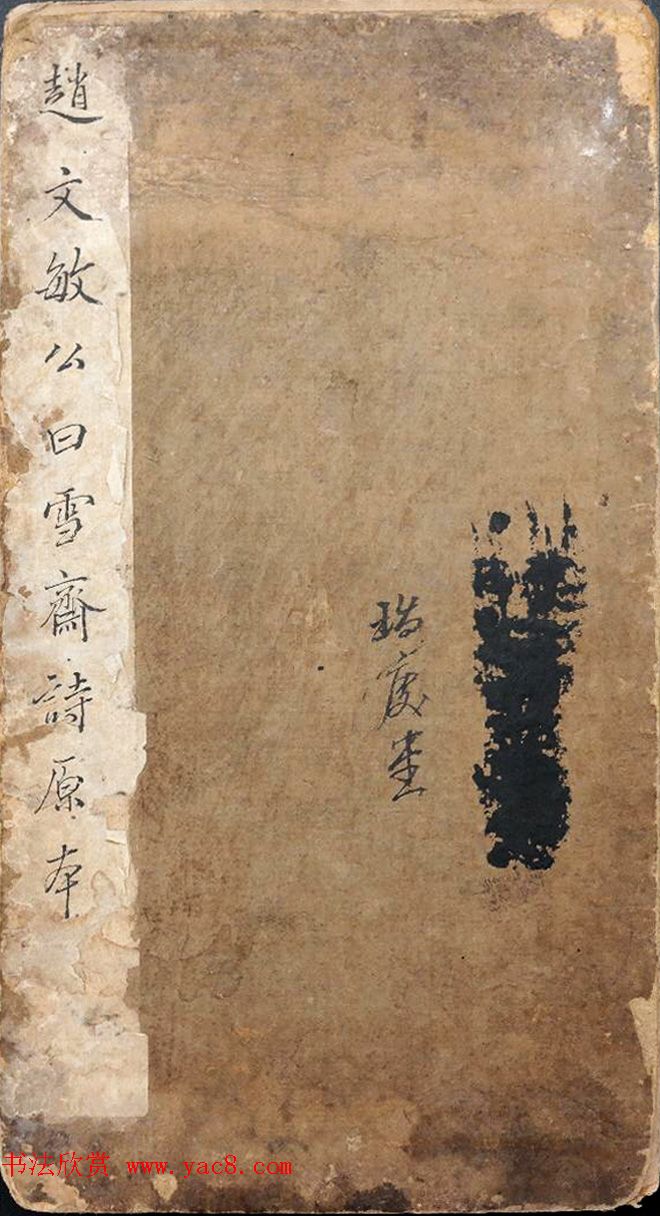 趙文敏公曰雪齋詩原本
书法欣赏 www.yac8.com